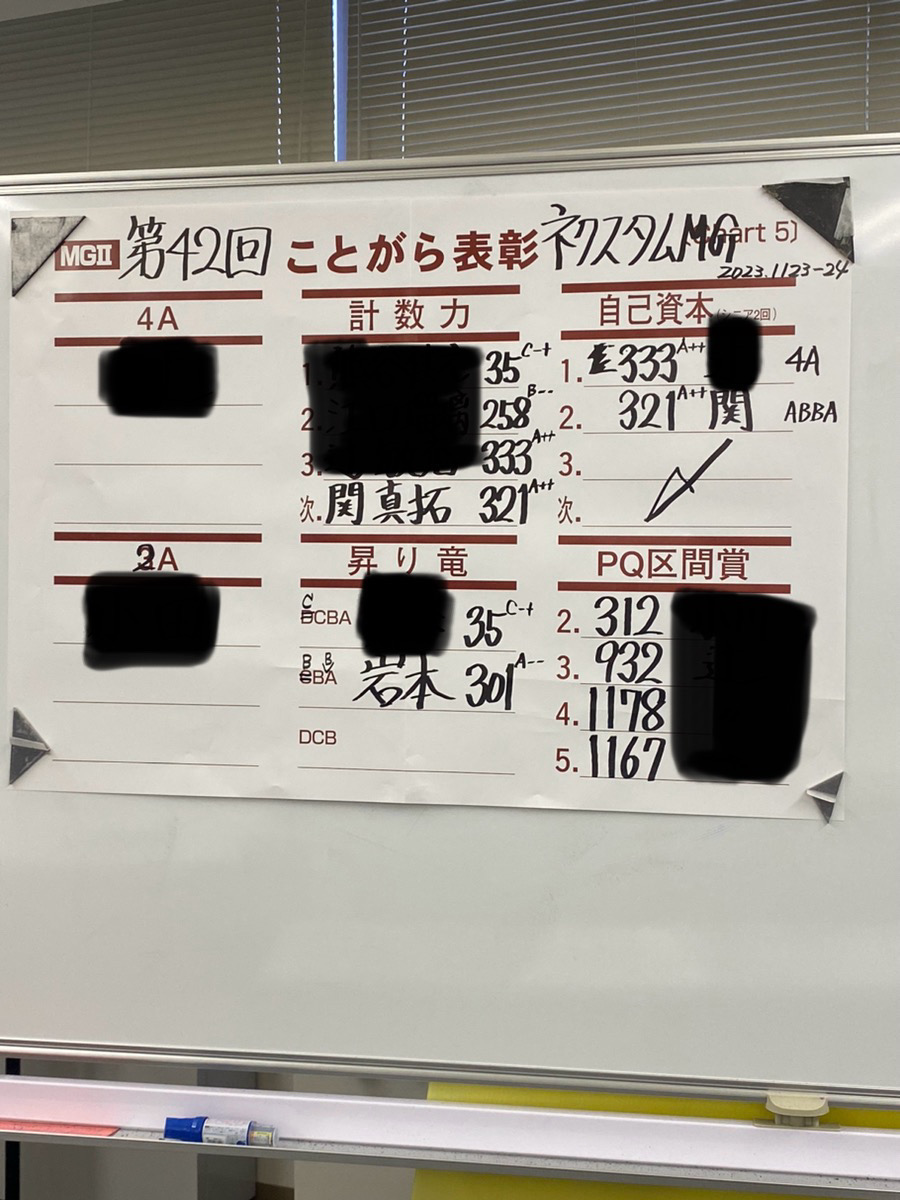 MGⅡ 第42回 ことがら表彰 ネクスタムMG
2023.1123-24
4A
計数力
1. 35 C-+
2. 258 B--
3. 333 A++
次. 関真拓 321 A++
自己資本 (シニア2回)
1. 333 A++ 4A
2. 321 A++ 関 ABBA
3.
次.
3A
昇り竜
CCBA 35 C-+
BBA 岩本 301 A--
DCB
PQ区間賞
2. 312
3. 932
4. 1178
5. 1167